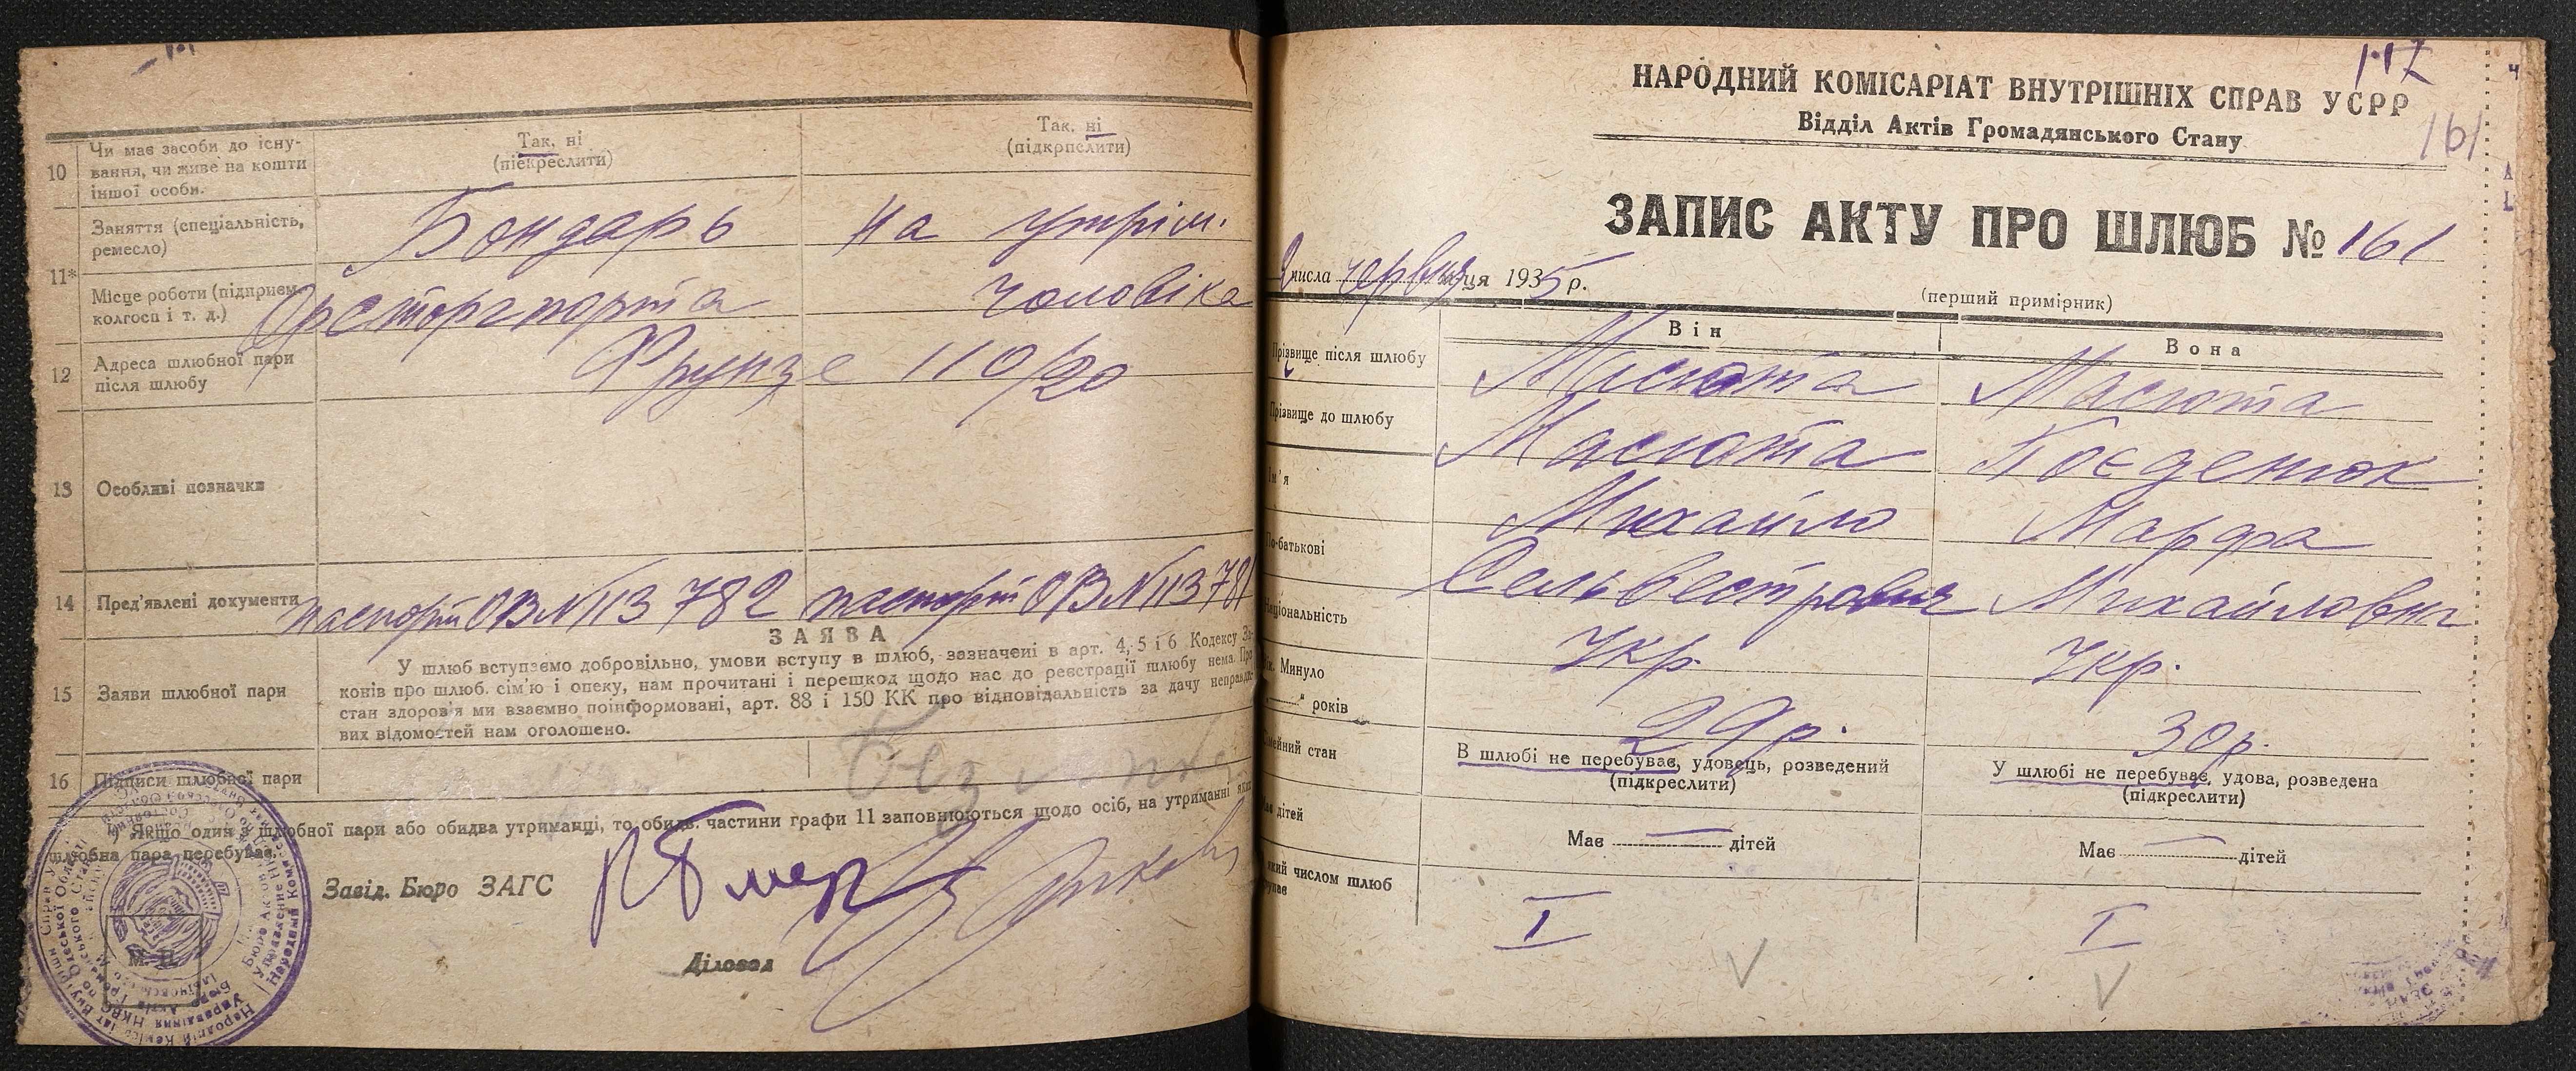 10 Чи має засоби до існу-
вання, чи живе на кошти
іншої особи.
Так, ні
(піекреслити)
Так, ні
(підкрпслити)
11*
Заняття (спеціальність,
ремесло)
Бондарь
на утрім.
Місце роботи (підприєм-
колгосп і т. д.)
чоловіка
12 Адреса шлюбної пари
після шлюбу
Фрунзе 110/20
13 Особливі позначки
14 Пред'явлені документи
паспорт ОВ№113782
паспорт ОВ№113781
ЗАЯВА
15 Заяви шлюбної пари
У шлюб вступаємо добровільно, умови вступу в шлюб, зазначені в арт. 4, 5 і 6 Кодексу За-
конів про шлюб, сім'ю і опеку, нам прочитані і перешкод щодо нас до реєстрації шлюбу нема. Про
стан здоров'я ми взаємно поінформовані, арт. 88 і 150 КК про відповідальність за дачу неправди-
вих відомостей нам оголошено.
16 Підписи шлюбної пари
*) Якщо один з шлюбної пари або обидва утриманці, то обидв. частини графи 11 заповнюються щодо осіб, на утриманні яких
шлюбна пара перебуває.
Завід. Бюро ЗАГС
Діловод
М. П.
117
НАРОДНИЙ КОМІСАРІАТ ВНУТРІШНІХ СПРАВ УСРР
Відділ Актів Громадянського Стану
161
ЗАПИС АКТУ ПРО ШЛЮБ № 161
числа червня м-ця 1935 р.
(перший примірник)
Він
Вона
Прізвище після шлюбу
Масюта
Масюта
Прізвище до шлюбу
Масюта
Поєденюк
Ім'я
Михайло
Марфа
По-батькові
Сельвестрович
Михайловна
Національність
Укр.
Укр.
Вік. Минуло
" років
29 р.
30 р.
Сімейний стан
В шлюбі не перебуває, удовець, розведений
(підкреслити)
У шлюбі не перебуває, удова, розведена
(підкреслити)
Має дітей
Має — дітей
Має — дітей
який числом шлюб
I
I